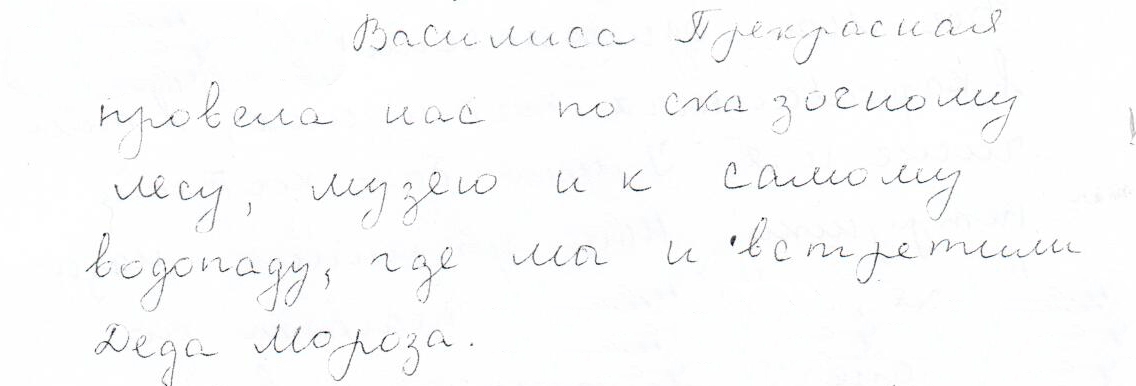 Василиса Прекрасная
провела нас по сказочному
лесу, музею и к самому
водопаду, где мы и встретили
Деда Мороза.